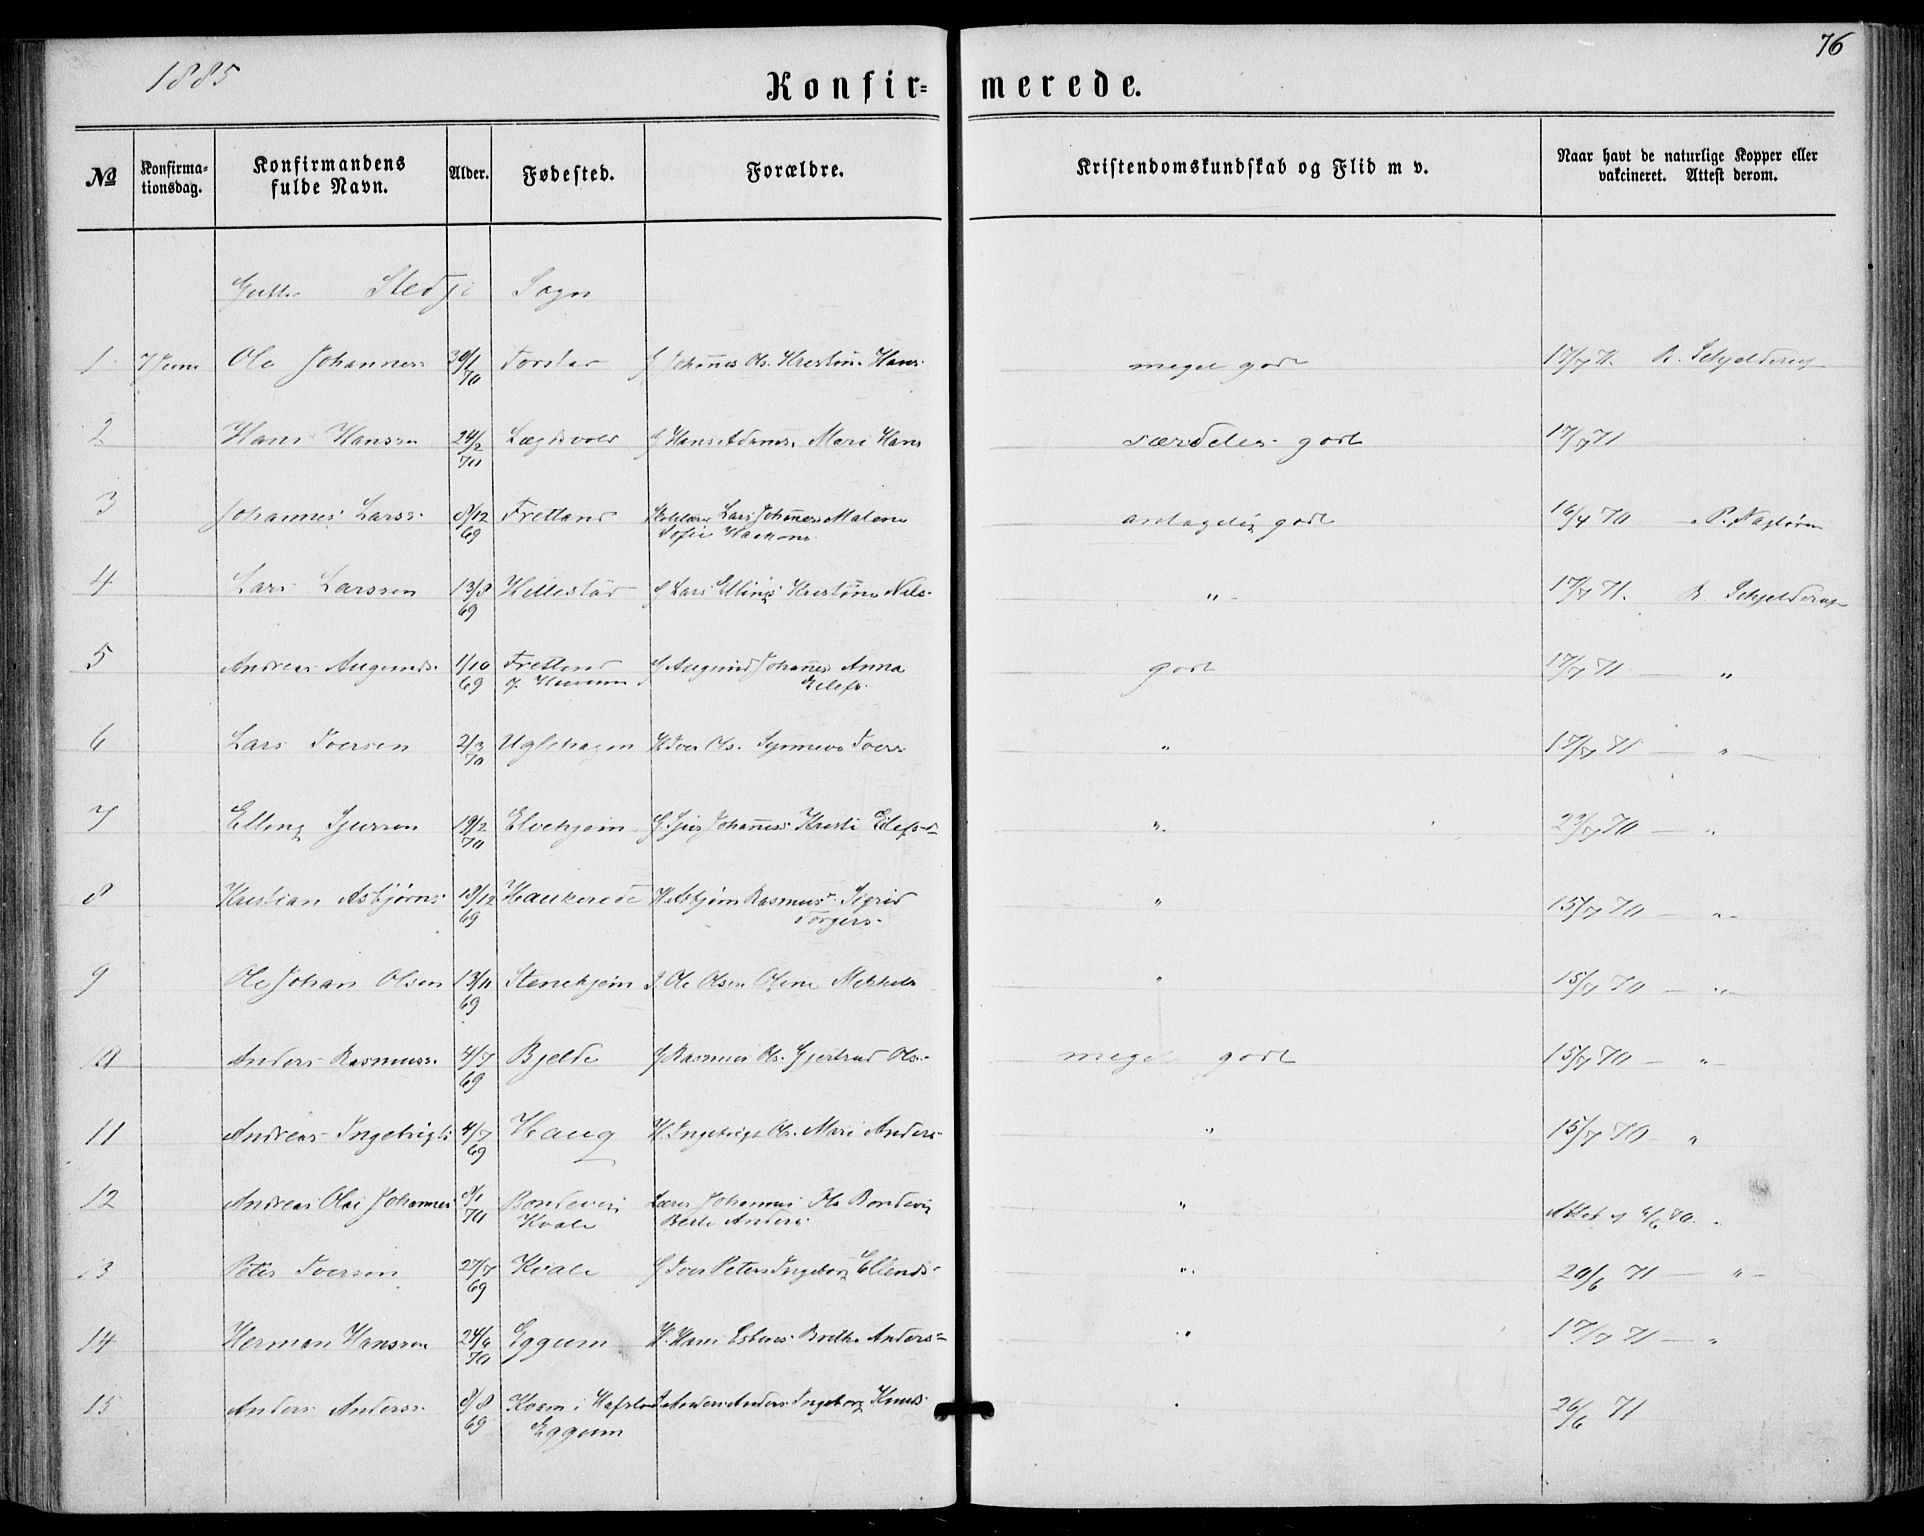 1885
76
Konfir=
merede.
№ Konfirma-tionsdag. Konfirmandens fulde Navn. Alder. Fødested. Forældre. Kristendomskundskab og Flid m v. Naar havt de naturlige Kopper eller vakcineret. Attest derom.
Gutter Stedje Sogn
1 7 Juni Ole Johannes 30/1 70 G Johañes Ols. Kristine Hans. meget godt 17/7 71. B. Schjelderup
2 Hans Hanssen 24/2 70 Lægdsvold G Hans Adams. Mari Hans særdeles godt 17/7 71
3 Johannes Larss. 8/12 69 Fretland Lars Johañes Malene
Sofie Haakons. antagelig godt 16/4 70
4 Lars Larssen 13/8 69 Hillestad G Lars Ellings Kristine Nils. " 17/7 71. B. Schjelderup
5 Andreas Augunds. 1/10 69 Fretland G Augund Johañes Anna godt 17/7 71 — "
6 Lars Iversen 2/3 70 Uglehagen H Iver Ols. Synneve Ivers " 17/7 71 — " —
7 Elling Sjursen 19/2 70 Elvehjem G. Sjur Johañess Kristi Eilefsd " 23/7 70 — "
8 Kristian Asbjørns 18/12 69 Haukerede H. Asbjørn Rasmus Sigrid
Torgers. " 15/7 70 — "
9 Ole Johan Olsen 13/11 69 Stenehjem Ole Olsen Olina " 15/7 70 — "
10 Anders Rasmuss. 4/7 69 Bjelde G Rasmus Ols. Gjertrud Ols. meget godt 15/7 70 — "
11 Andreas Ingebrigts 4/7 69 Haug H. Ingebrigt Ols. Mari Anders " 15/7 70 "
12 Andreas Olai Johannes 9/1 70 Bondevig
Kvale Lærer Johannes Ols Bondevig
Berte Anders. " Attest af 4/6 80.
13 Peter Iversen 27/7 69 Kvale G Iver Peters Ingeborg Ellends " 20/6 71 — " —
14 Herman Hanssen 24/6 70 Eggum H. Hans Esbens. Brethe Anders " 17/7 71 — "
15 Anders Anderss. 8/8 69 Kvam i Hafslo
Eggum Anders Anders Ingeborg Knuds 26/6 71